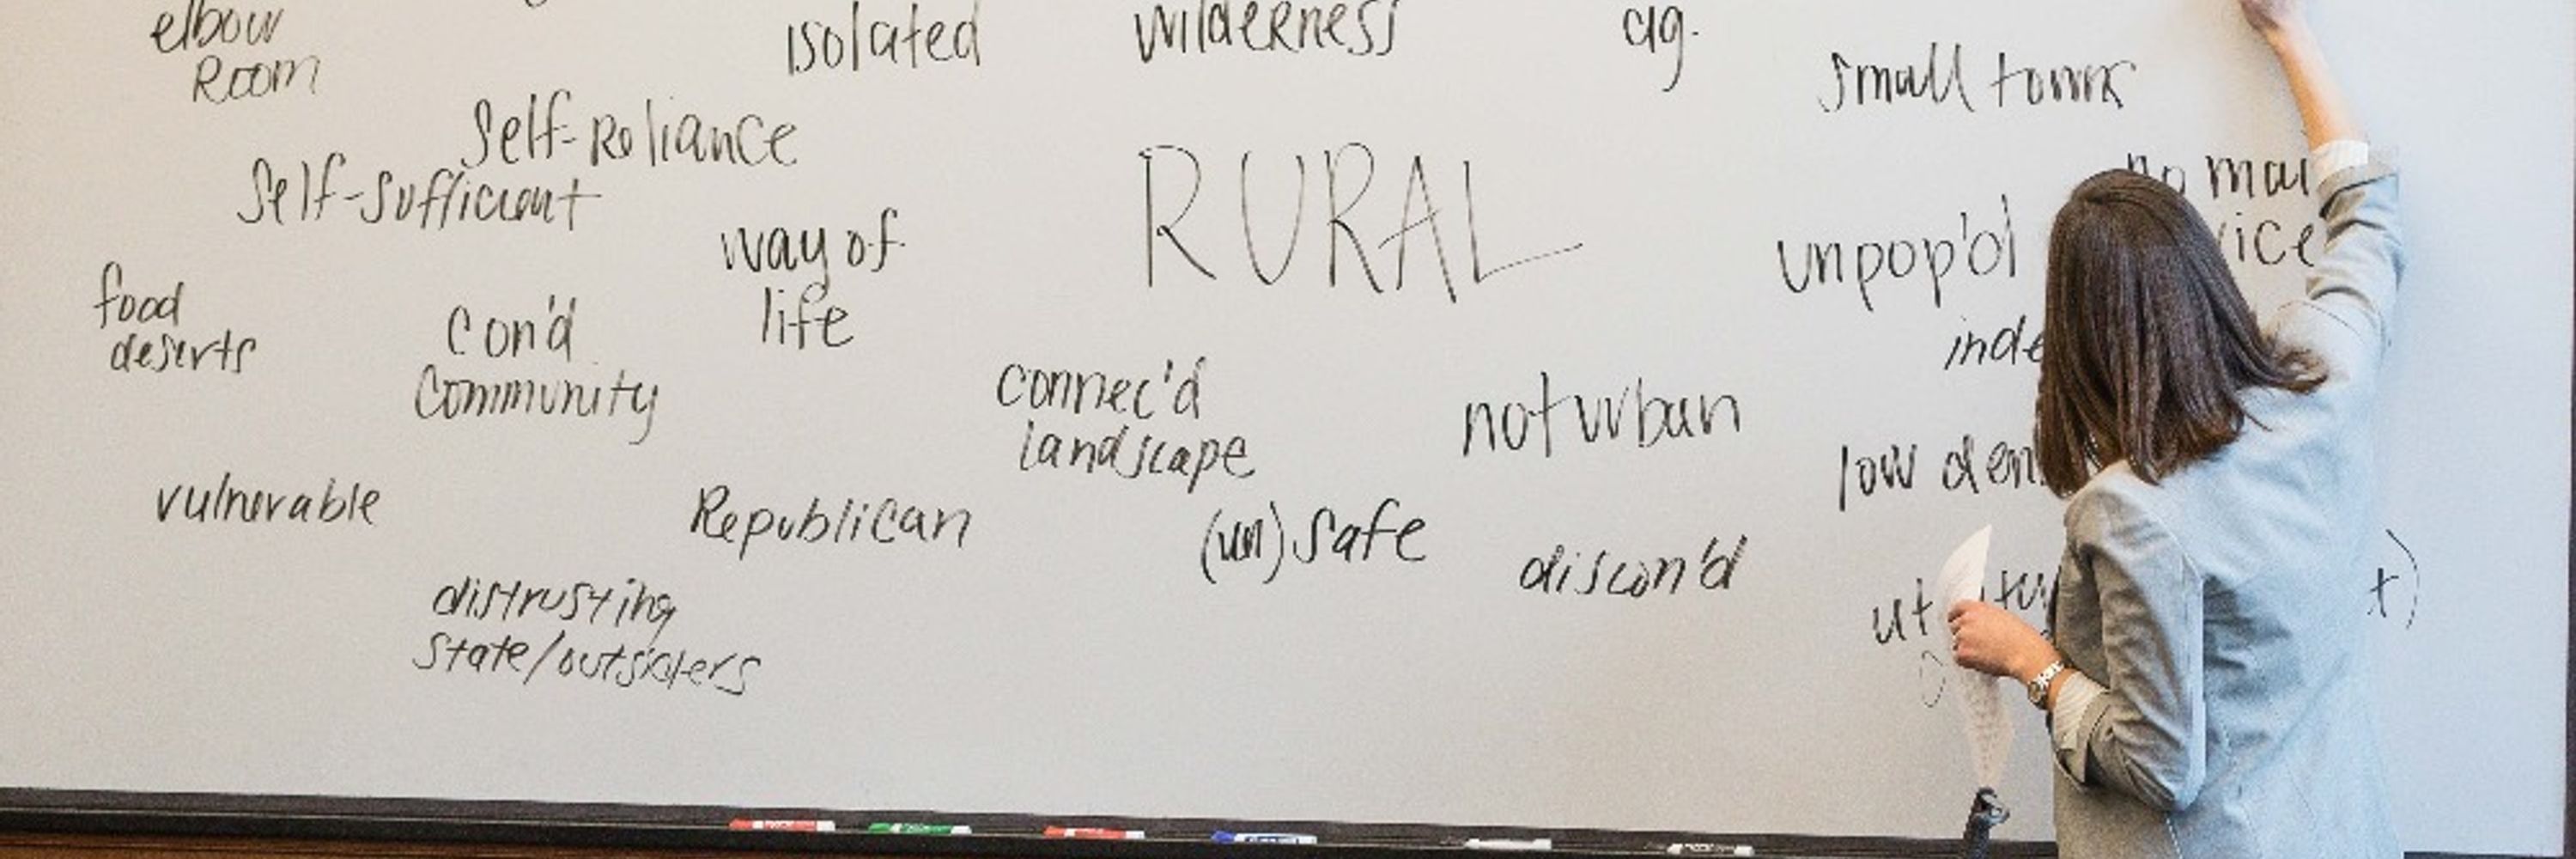 elbow
Room
isolated
wilderness
ag.
small towns
Self-Reliance
Self-sufficient
RURAL
no mai
vice
way of
life
unpop'd
food
deserts
con'd
community
connec'd
landscape
not urban
inde
low den
vulnerable
Republican
(un)safe
discon'd
distrusting
state/outsiders
x)